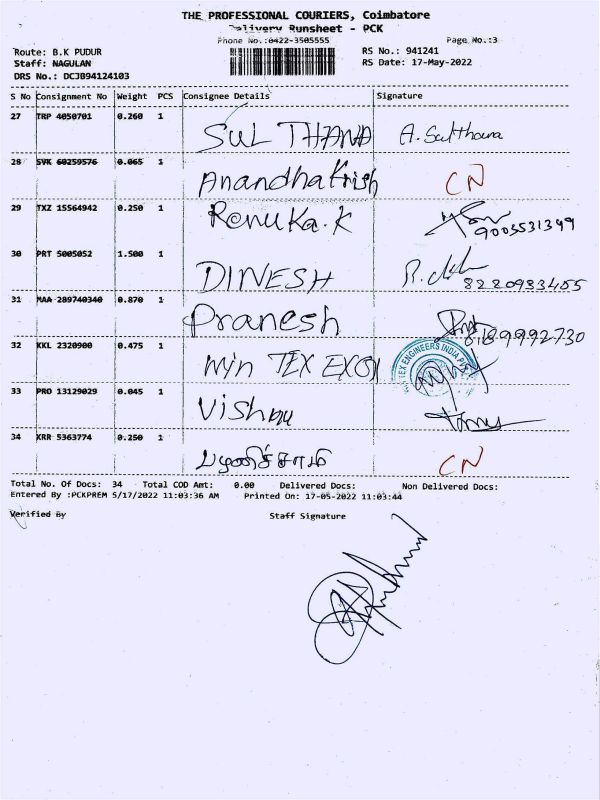 THE PROFESSIONAL COURIERS, Coimbatore
Delivery Runsheet - PCK
Phone No.:0422-3505555 Page No.:3
Route: B.K PUDUR RS No.: 941241
Staff: NAGULAN RS Date: 17-May-2022
DRS No.: DCJ894124103
S No Consignment No Weight PCS Consignee Details Signature
27 TRP 4050701 0.260 1 SULTHANA A. Sulthana
28 SVK 60259576 0.065 1 Anandha Krish CN
29 TXZ 15564942 0.250 1 Renuka.K 9003531349
30 PRT 5005052 1.500 1 DINESH 8220933455
31 MAA 289740340 0.870 1 Pranesh
32 KKL 2320900 0.475 1 Min TEX TEX ENGINEERS INDIA
33 PRO 13129029 0.045 1 Vishnu
34 KRR 5363774 0.250 1 பழனிச்சாமி CN
Total No. Of Docs: 34 Total COD Amt: 0.00 Delivered Docs: Non Delivered Docs:
Entered By :PCKPREM 5/17/2022 11:03:36 AM Printed On: 17-05-2022 11:03:44
Verified By Staff Signature